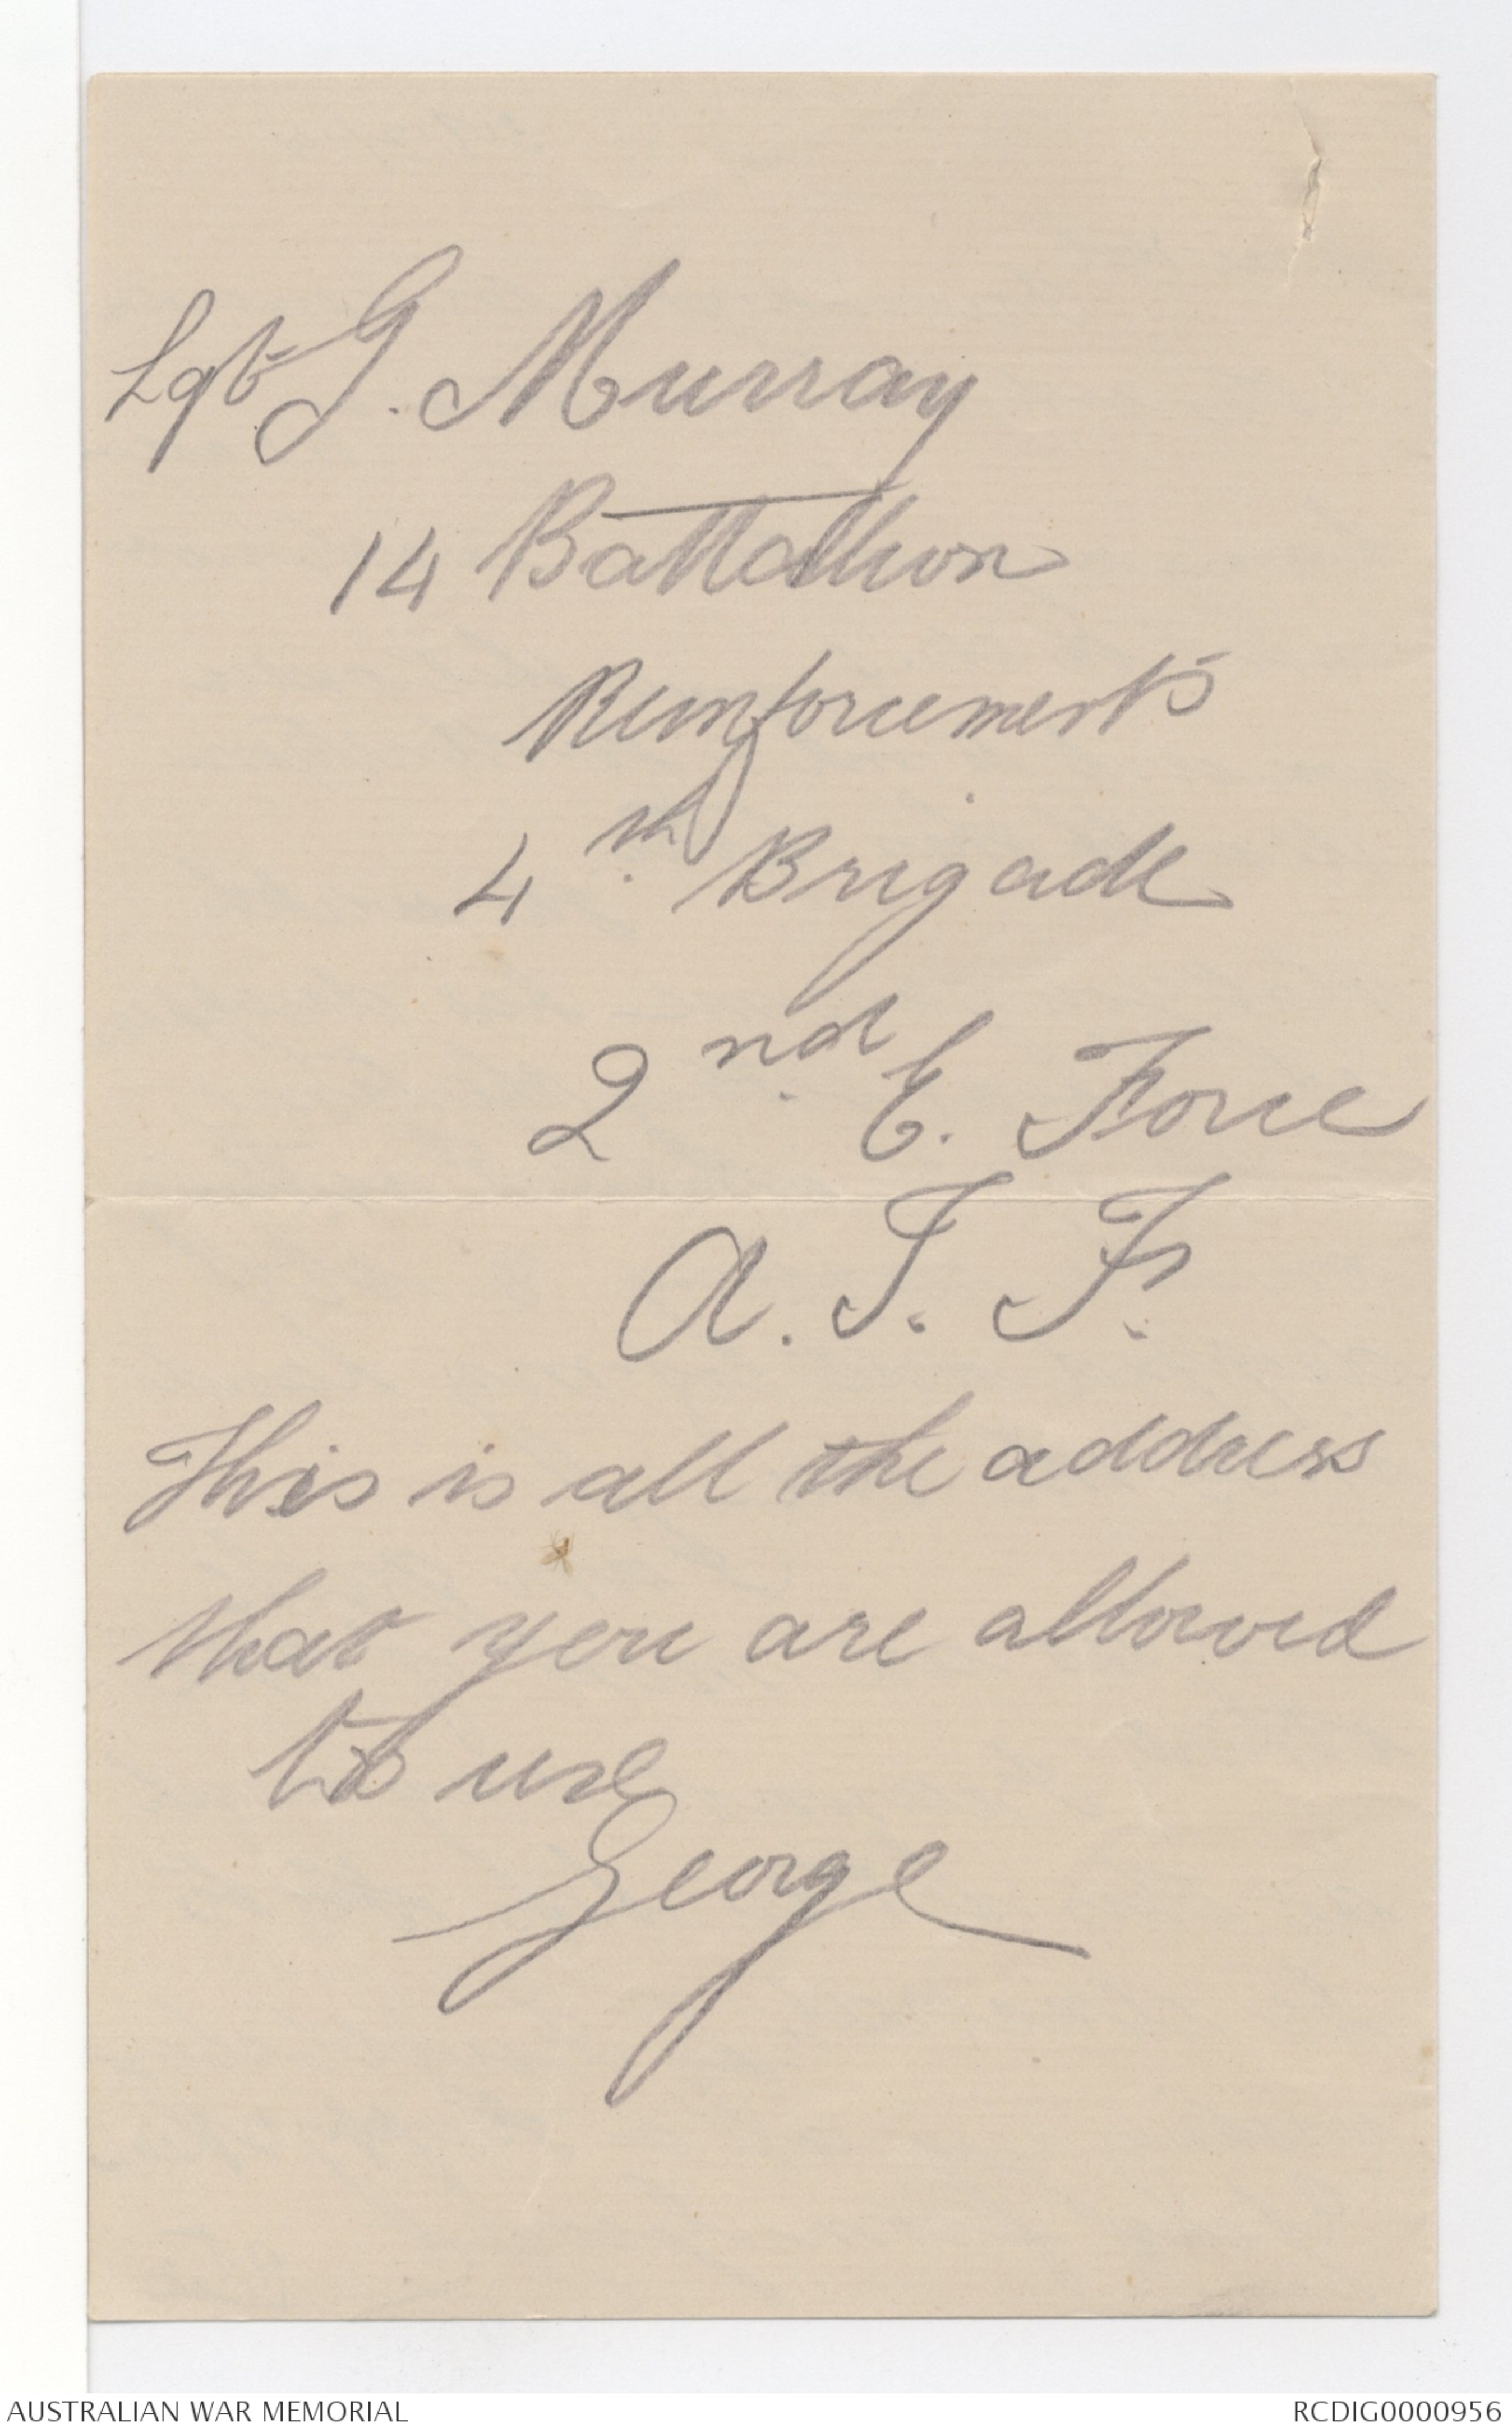 Sgt G. Murray
14 Battalion
Reinforcements
4th Brigade
2nd E. Force
A. I. F.
This is all the address
that you are allowed
to use
George
AUSTRALIAN WAR MEMORIAL
RCDIG0000956